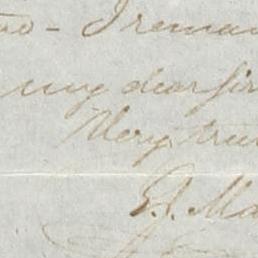 - I remain
my dear Sir
Very tru
E. J. Ma